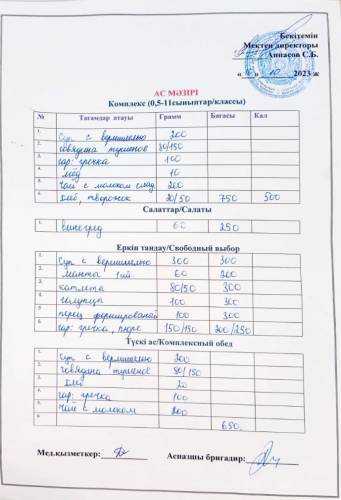 Бекітемін
Мектеп директоры
Аппасов С.Б.
2023 ж
АС МӘЗІРІ
Комплекс (0,5-11сыныптар/классы)
№ Тағамдар атауы Грамм Бағасы Кал
1. Суп с вермишелью 200
2. говядина тушеное 80/150
3. гар: гречка 100
4. мёд 10
5. чай с молоком слад 200
6. хлеб, творожок 20/50 750 500
Салаттар/Салаты
1. винегред 60 250
Еркін таңдау/Свободный выбор
1. Суп с вермишелью 300 300
2. манты 1ый 60 200
3. котлета 80/50 300
4. голубцы 100 300
5. перец фаршированый 100 300
6. гар: гречка, пюре 150/150 200/250
Түскі ас/Комплексный обед
1. Суп с вермишелью 200
2. говядина тушеное 80/150
3. хлеб 20
4. гар: гречка 100
5. чай с молоком 200
6 650
Мед.қызметкер:
Аспазшы бригадир: